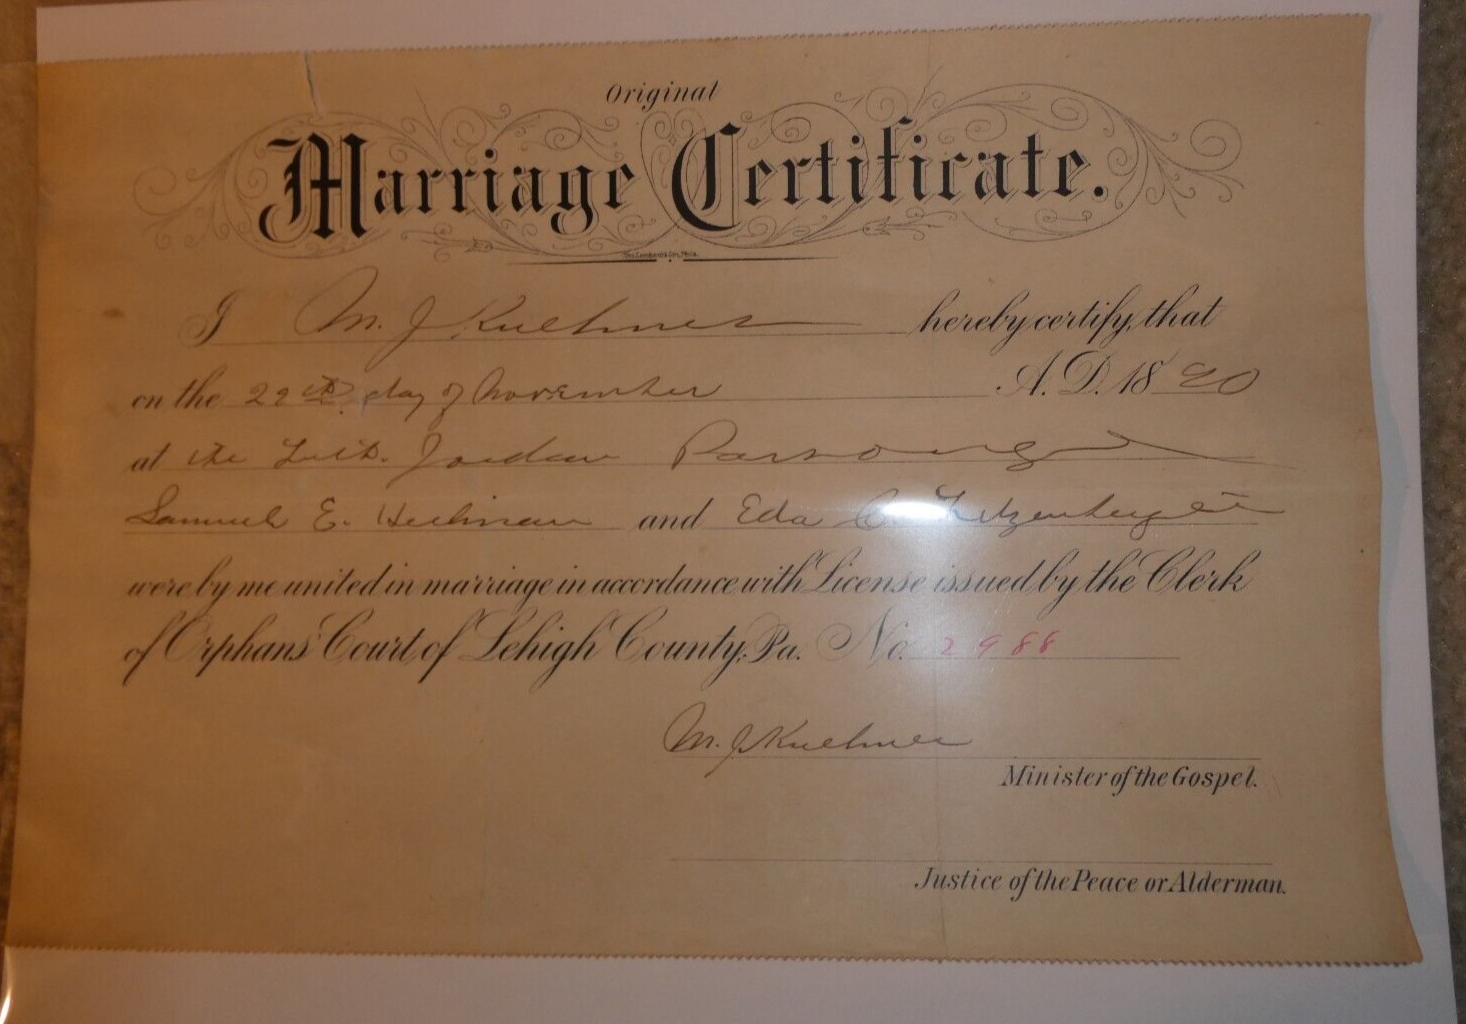 Original
Marriage Certificate.
I M. J. Kuehner hereby certify, that
on the 29th day of November A.D. 1890
at the Luth. Jordan Parsonage
Samuel E. and Eda C.
were by me united in marriage in accordance with License issued by the Clerk
of Orphans' Court of Lehigh County, Pa. No. 2988
M. J. Kuehner
Minister of the Gospel.
Justice of the Peace or Alderman.